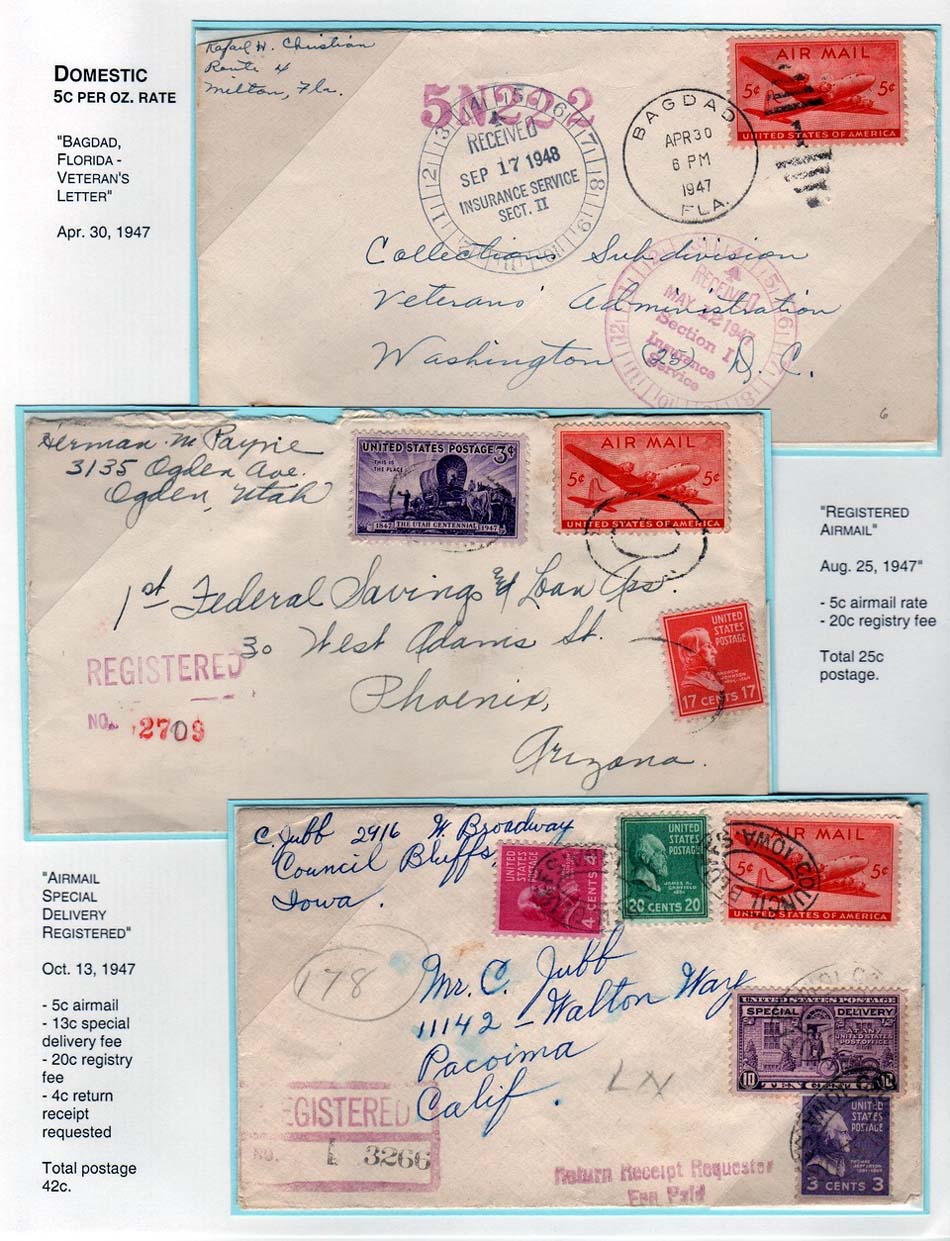 DOMESTIC
5C PER OZ. RATE
"BAGDAD,
FLORIDA -
VETERAN'S
LETTER"
Apr. 30, 1947
Rafael W. Christian
Route 4
Milton, Fla.
5N222
RECEIVED
SEP 17 1948
INSURANCE SERVICE
SECT. II
BAGDAD
APR 30
6 PM
1947
FLA.
AIR MAIL
5¢ 5¢
UNITED STATES OF AMERICA
Collections Subdivision
Veterans' Administration
Washington (25) D.C.
RECEIVED
MAY 12 1947
Section I
Insurance
Service
6
Herman M Payne
3135 Ogden Ave.
Ogden, Utah
UNITED STATES POSTAGE 3¢
THIS IS
THE PLACE
1847 THE UTAH CENTENNIAL 1947
AIR MAIL
5¢ 5¢
UNITED STATES OF AMERICA
1st Federal Savings and Loan Ass.
30 West Adams St.
Phoenix,
Arizona.
REGISTERED
NO. 2709
UNITED
STATES
POSTAGE
ANDREW
JOHNSON
17 CENTS 17
"REGISTERED
AIRMAIL"
Aug. 25, 1947"
- 5c airmail rate
- 20c registry fee
Total 25c
postage.
"AIRMAIL
SPECIAL
DELIVERY
REGISTERED"
Oct. 13, 1947
- 5c airmail
- 13c special
delivery fee
- 20c registry
fee
- 4c return
receipt
requested
Total postage
42c.
C. Jubb 2916 W. Broadway
Council Bluffs,
Iowa.
UNITED
STATES
POSTAGE
4 CENTS 4
UNITED
STATES
POSTAGE
JAMES A.
GARFIELD
20 CENTS 20
AIR MAIL
5¢ 5¢
UNITED STATES OF AMERICA
COUNCIL BLUFFS IOWA
178
Mr. C. Jubb
11142 - Walton Way
Pacoima
Calif.
UNITED STATES POSTAGE
SPECIAL DELIVERY
AT ANY
UNITED STATES
POST OFFICE
10 TEN CENTS 10
UNITED
STATES
POSTAGE
THOMAS
JEFFERSON
3 CENTS 3
EGISTERED
NO. 3266
Return Receipt Requested
Fee Paid